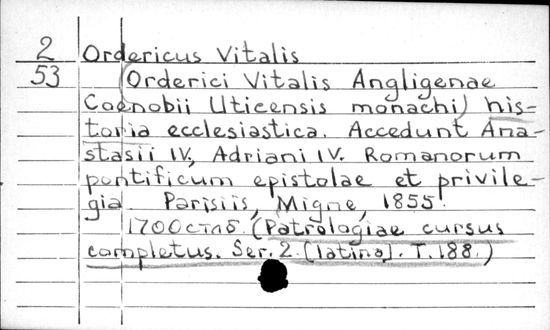 2 Ordericus Vitalis
53 (Orderici Vitalis Angligenae
Coenobii Uticensis monachi) his=
toria ecclesiastica. Accedunt Ana-
stasii IV, Adriani IV. Romanorum
pontificum epistolae et privile-
gia Parisiis, Migne, 1855.
1700 стлб. (Patrologiae cursus
completus. Ser. 2. (latina). T. 188.)